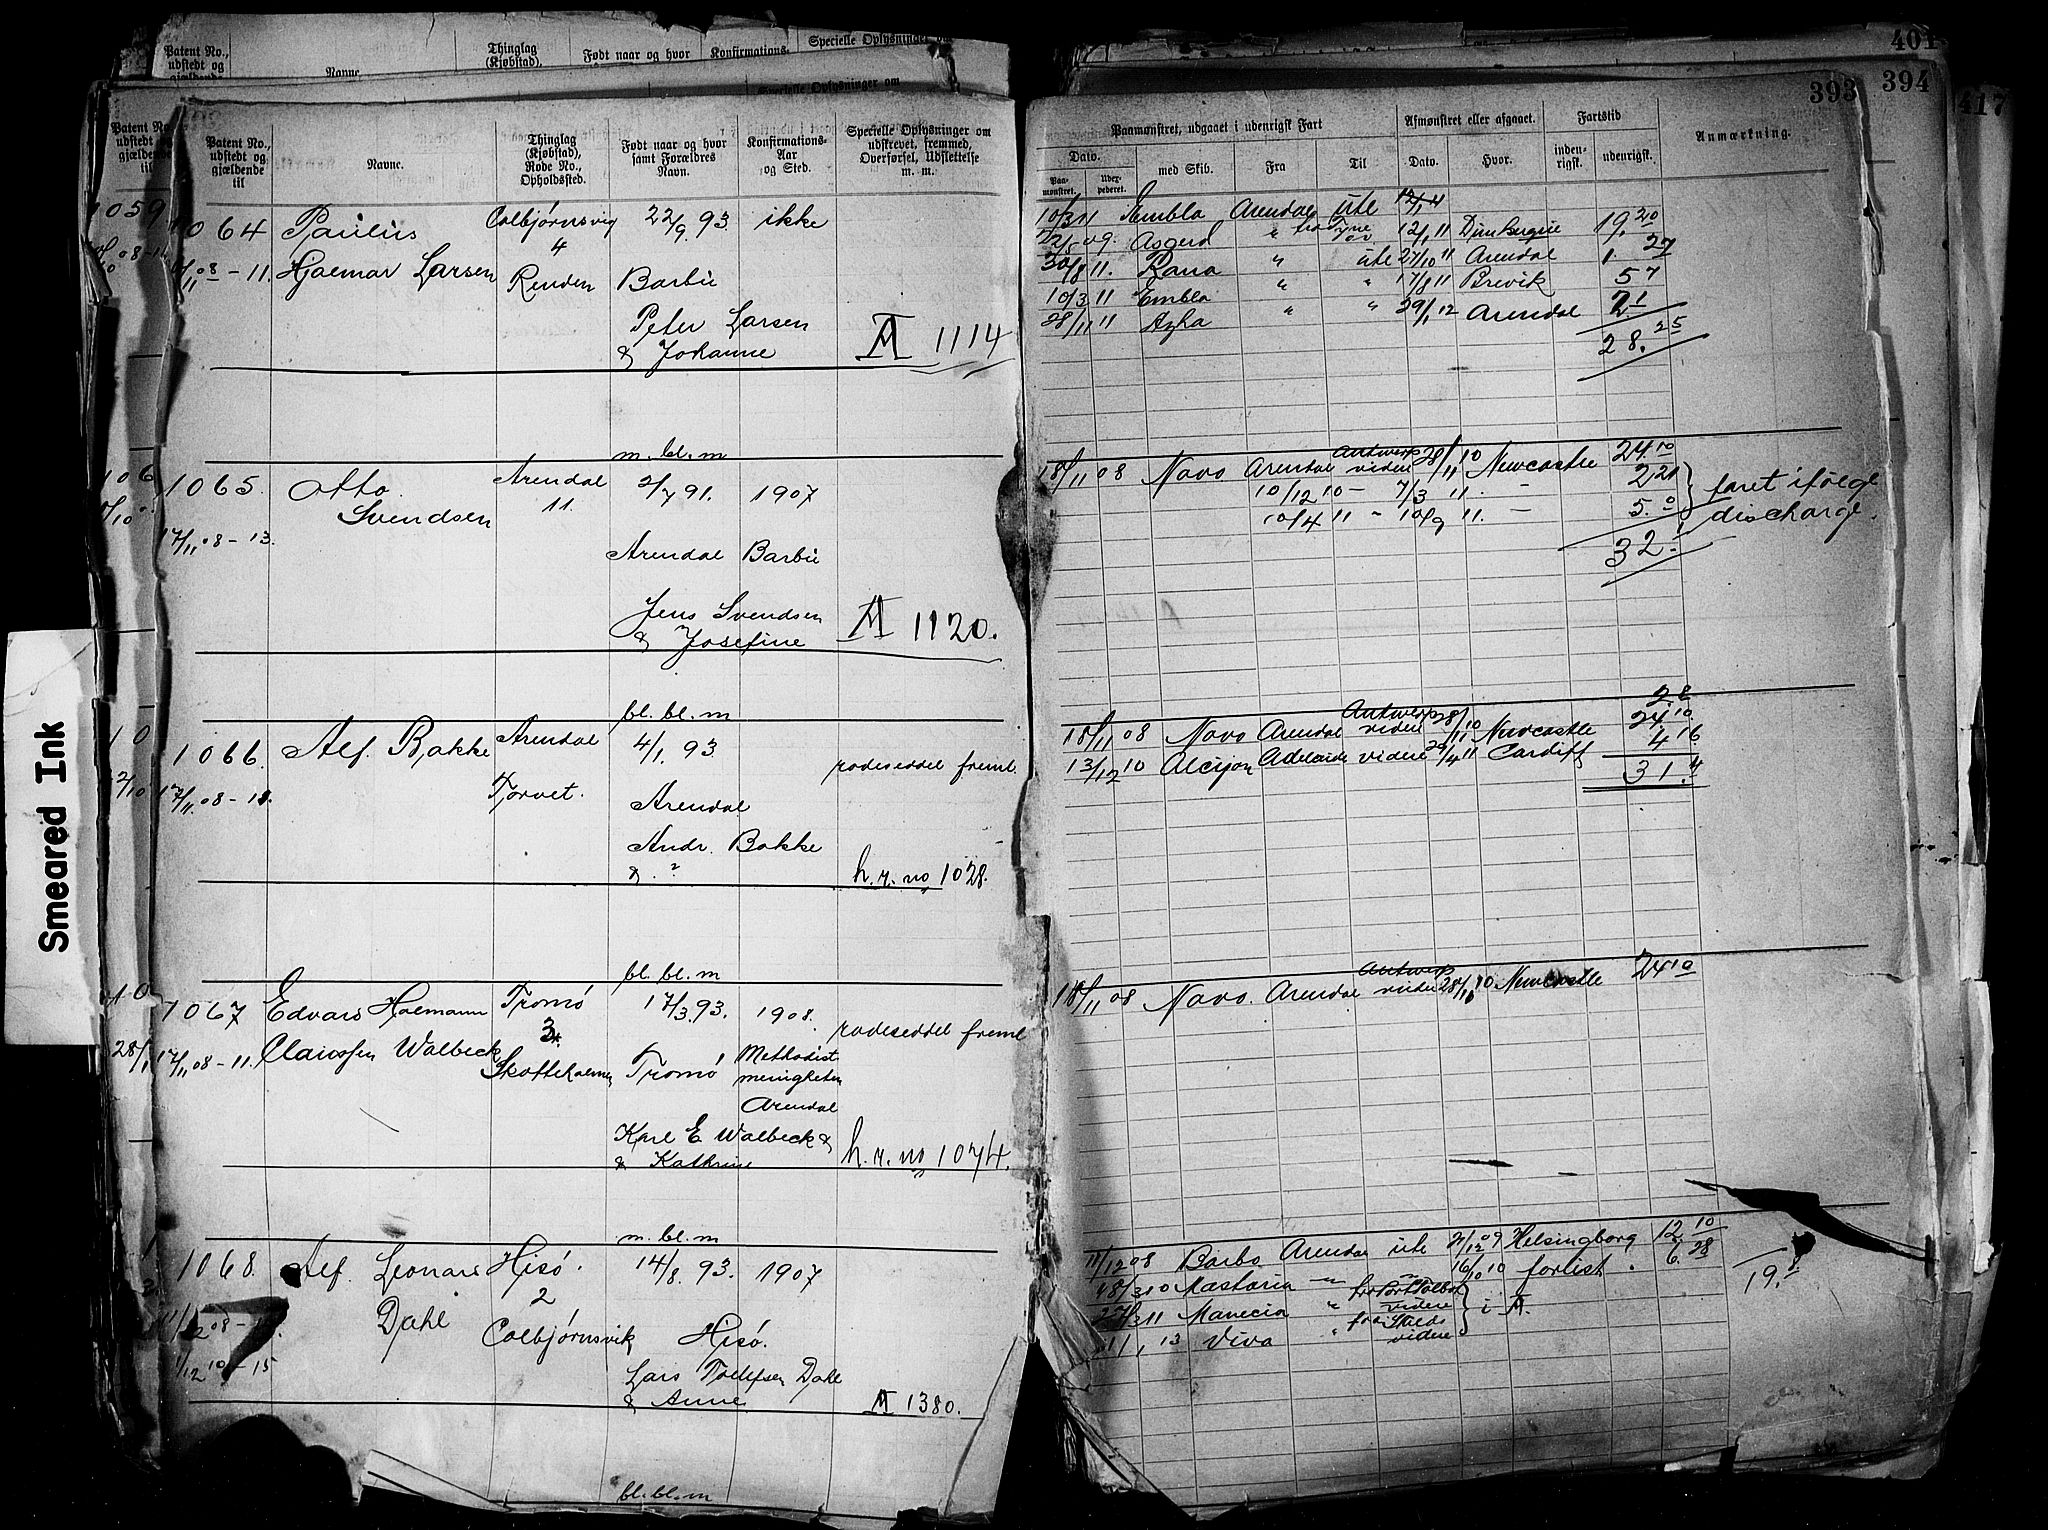 Patent No., udstedt og gjældende til
Navne.
Thinglag (Kjøbstad),
Født naar og hvor
Konfirmations-
Specielle Oplysninger om
401
394
417
393
Patent No., udstedt og gjældende til
Patent No., udstedt og gjældende til
Navne.
Thinglag (Kjøbstad), Rode No., Opholdssted.
Født naar og hvor samt Forældres Navn.
Konfirmations-Aar og Sted.
Specielle Oplysninger om udskrevet, fremmed, Overførsel, Udslettelse m. m.
Paamønstret, udgaaet i udenrigsk Fart
Afmønstret eller afgaaet.
Fartstid
Anmærkning.
Dato.
med Skib.
Fra
Til
Dato.
Hvor.
inden-rigsk.
udenrigsk.
Paa-mønstret.
1059
1064 Paulus Colbjørnsvig 22/9. 93. ikke
4
11/11 08-11. Hjalmar Larsen Renden Barbu
Peter Larsen
& Johanne
A 1114
10/3 11 Embla Arendal ute
22/5 09. Asgerd " 12/1 11 Dunkerque 19. 20
30/8 11. Rana " ute 27/10 11 Arendal 1. 27
10/3 11 Embla " " 17/8 11 Brevik 5 7
28/11 11 Azha " " 29/1 12 Arendal 2. 1
28. 25
m. bl. m
1065. Otto Arendal 2/7 91. 1907
Svendsen 11.
17/11 08-13.
Arendal Barbu
Jens Svendsen
& Josefine
A 1120.
18/11 08 Navo Arendal Antwerp videre 28/11 10 Newcastle 24. 10
10/12 10 - 7/3 11. - 2 21
10/4 11 - 10/9 11. - 5. 0
32. 1
faret ifølge
discharge.
bl. bl. m
1066. Alf. Bakke Arendal 4/1. 93
Torvet.
rodeseddel freml.
17/11. 08-
Arendal
Andr. Bakke
& . "
h. r. no 1028.
2. 8
18/11 08 Navo Arendal Antwerp videre 28/11 10 Newcastle 24. 10
13/12 10 Alcyon Adelaide videre 29/4 11 Cardiff 4 16
31. 4
bl. bl. m
1067 Edvard Halmann Tromø 17/3. 93. 1908.
rodeseddel freml
17/11 08-11. Claussen Walbeck Skotteholmen Tromø Methodist
menigheten
Arendal
Karl E Walbeck &
& Kathrine
h. r. no 1074.
18/11 08 Navo. Arendal Antwerp videre 28/11 10 Newcastle 24 10
m. bl. m
1068. Alf. Leonard Hisø. 14/8. 93. 1907
Dahl 2
Colbjørnsvik Hisø.
1/12 10 - 15
Lars Dahl
& Anne
A 1380.
11/12 08 Barbo Arendal ute 21/12 09 Helsingborg 12 10
18/3 10 Mastoria 16/10 10 forlist. 6. 28
19. 8
25/3 11 Manecia " videre } i A.
1/1 13 Viva " videre
bl. bl. m
Smeared Ink